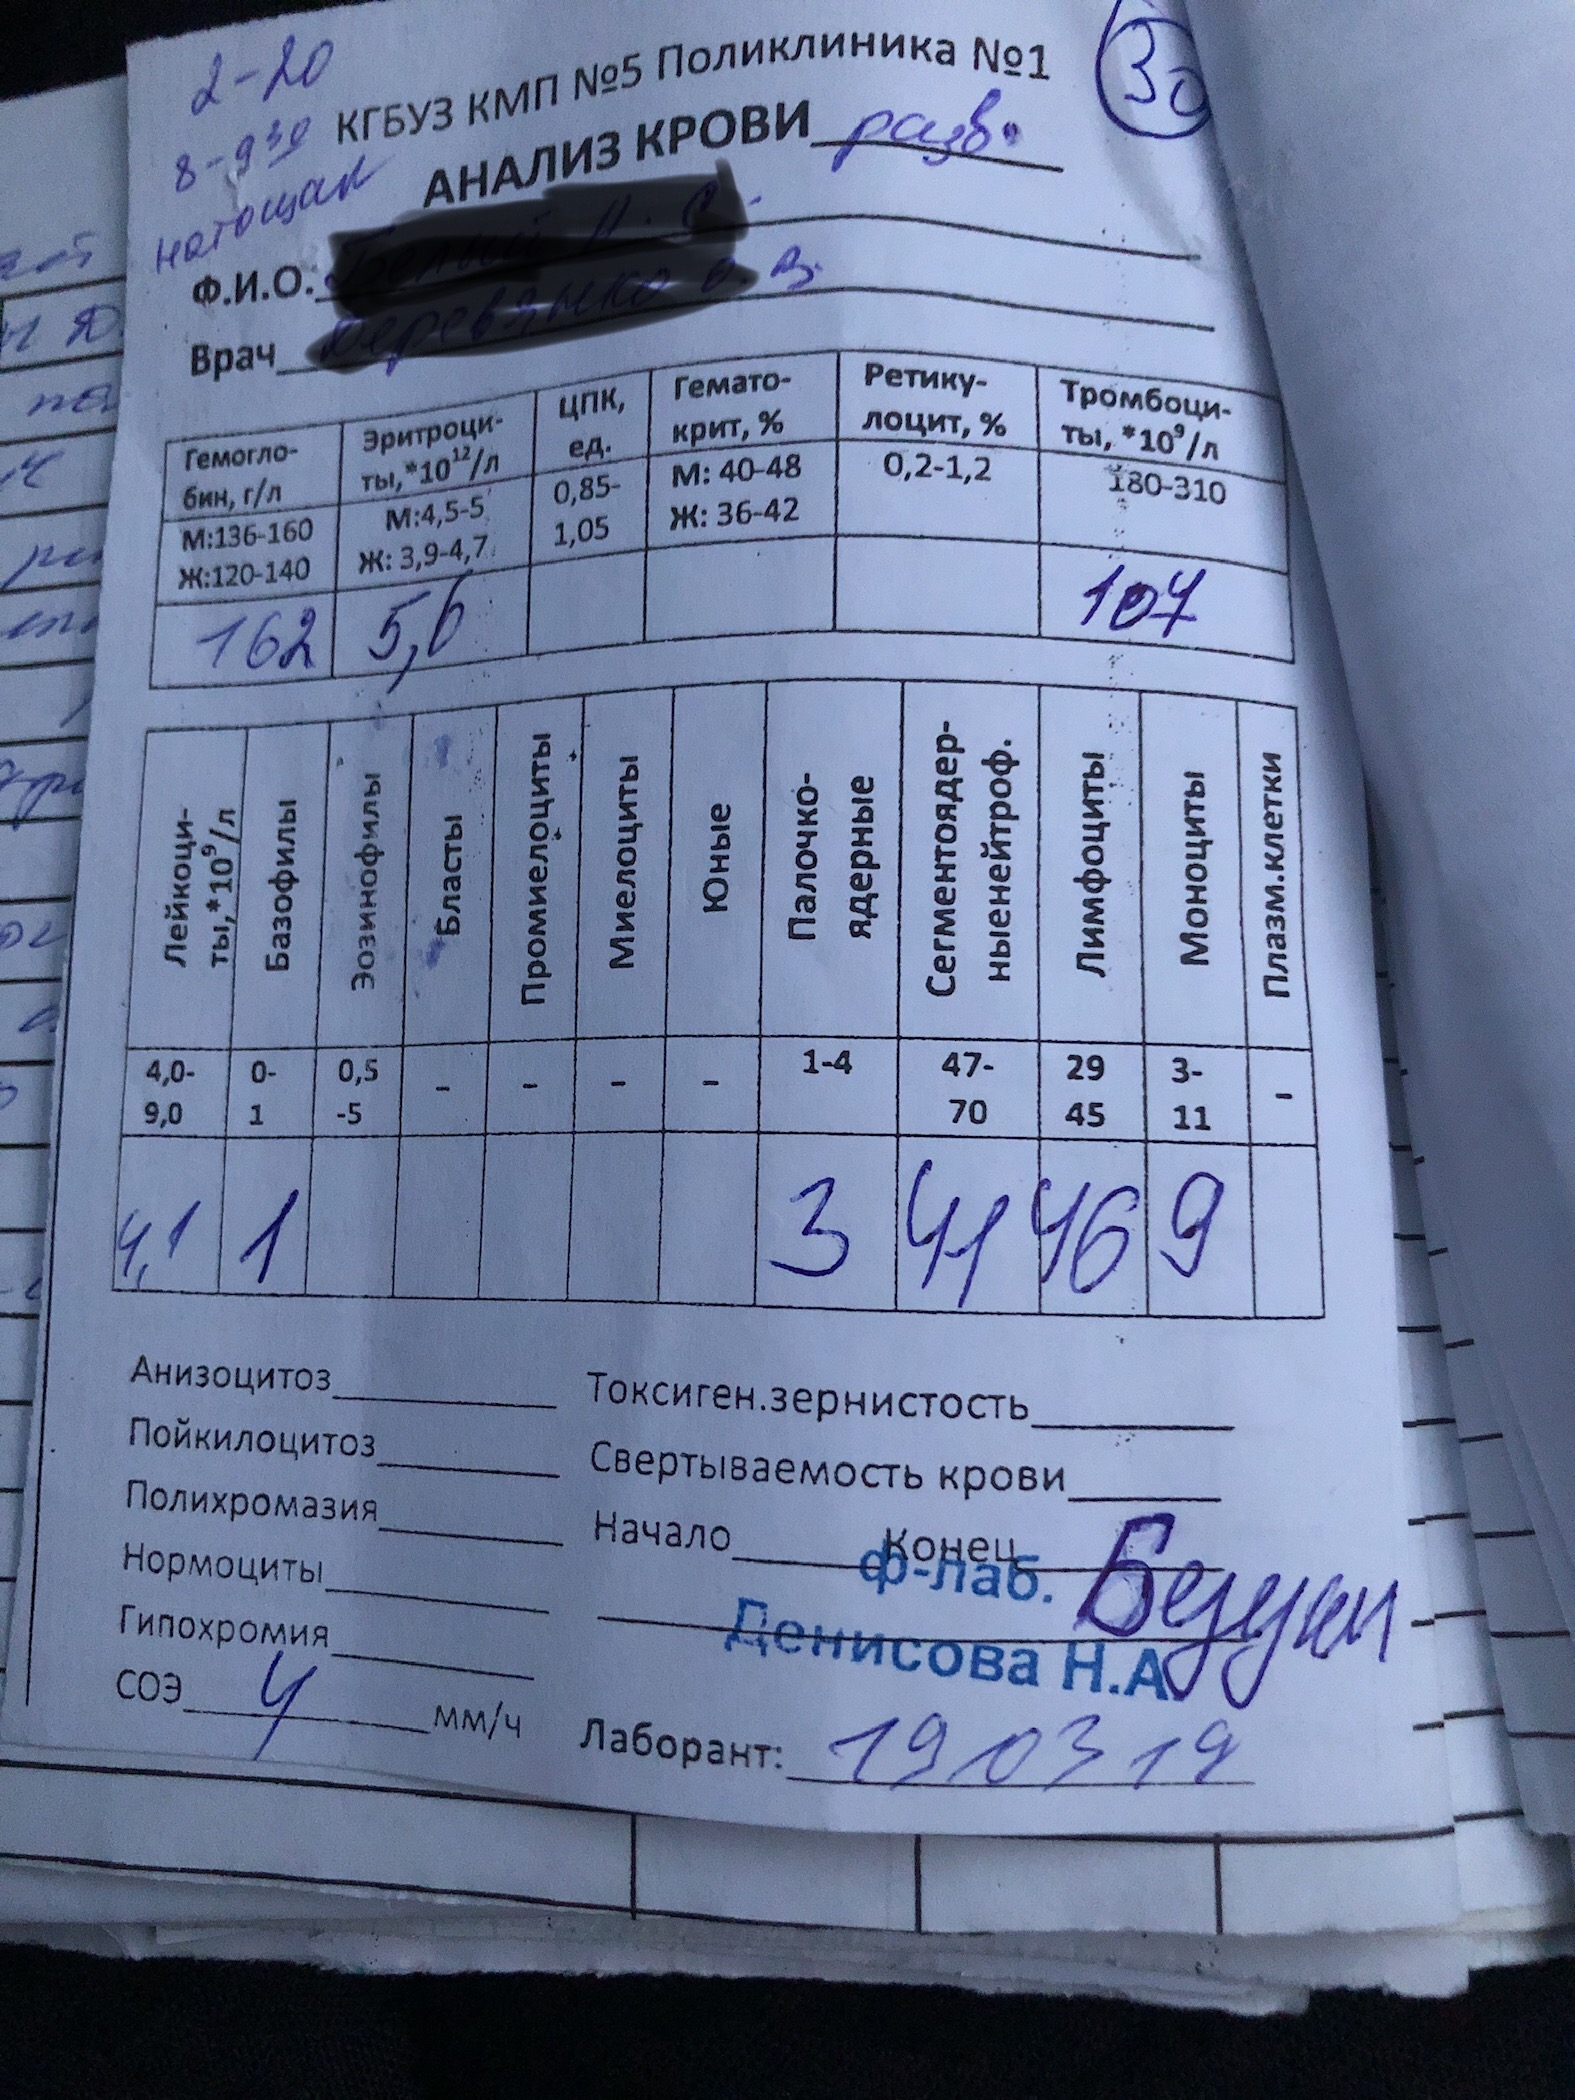 2-20
8-9³⁰
натощак
30
КГБУЗ КМП №5 Поликлиника №1
АНАЛИЗ КРОВИ разв.
Ф.И.О.:
Врач
Гемогло-бин, г/л Эритроци-ты,*10¹²/л ЦПК, ед. Гемато-крит, % Ретику-лоцит, % Тромбоци-ты, *10⁹/л
М:136-160 М:4,5-5 0,85- М: 40-48 0,2-1,2 180-310
Ж:120-140 Ж: 3,9-4,7 1,05 Ж: 36-42
162 5,6 107
Лейкоци-ты,*10⁹/л Базофилы Эозинофилы Бласты Промиелоциты Миелоциты Юные Палочко-ядерные Сегментоядер-ныенейтроф. Лимфоциты Моноциты Плазм.клетки
4,0- 0- 0,5 - - - - 1-4 47- 29 3- -
9,0 1 -5 70 45 11
4,1 1 3 41 46 9
Анизоцитоз Токсиген.зернистость
Пойкилоцитоз Свертываемость крови
Полихромазия Начало Конец
Нормоциты ф-лаб.
Гипохромия Денисова Н.А.
СОЭ 4 мм/ч Лаборант: 19 03 19